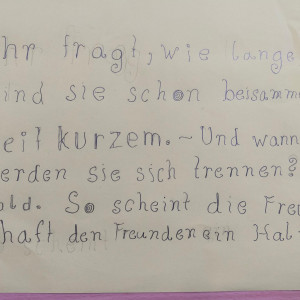 hr fragt, wie lange
ind sie schon beisamme
eit kurzem. ~ Und wann
erden sie sich trennen?
ald. So scheint die Freu
haft den Freunden ein Halt